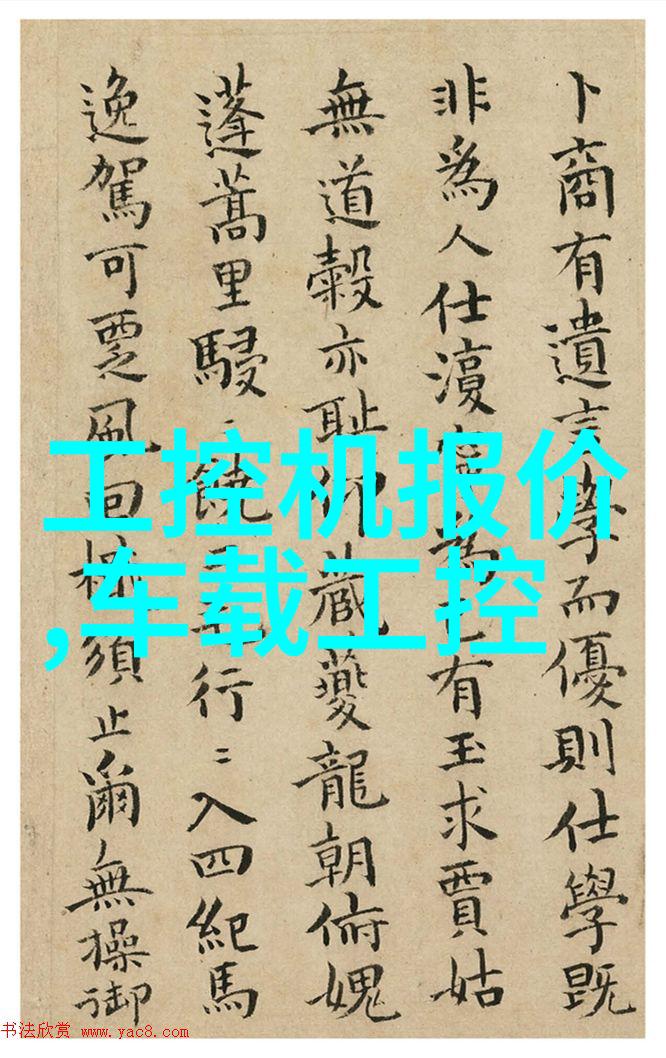 卜商有遺言學而優則仕學既
非為人仕湏為己有玉求賈姑
無道穀亦恥仰蔵夔龍朝俯媿
蓬蒿里駸〻饒行〻入四紀馬
逸駕可覂風回須止爾無操御
工控机报价
,车载工控
书法欣赏 www.yac8.com